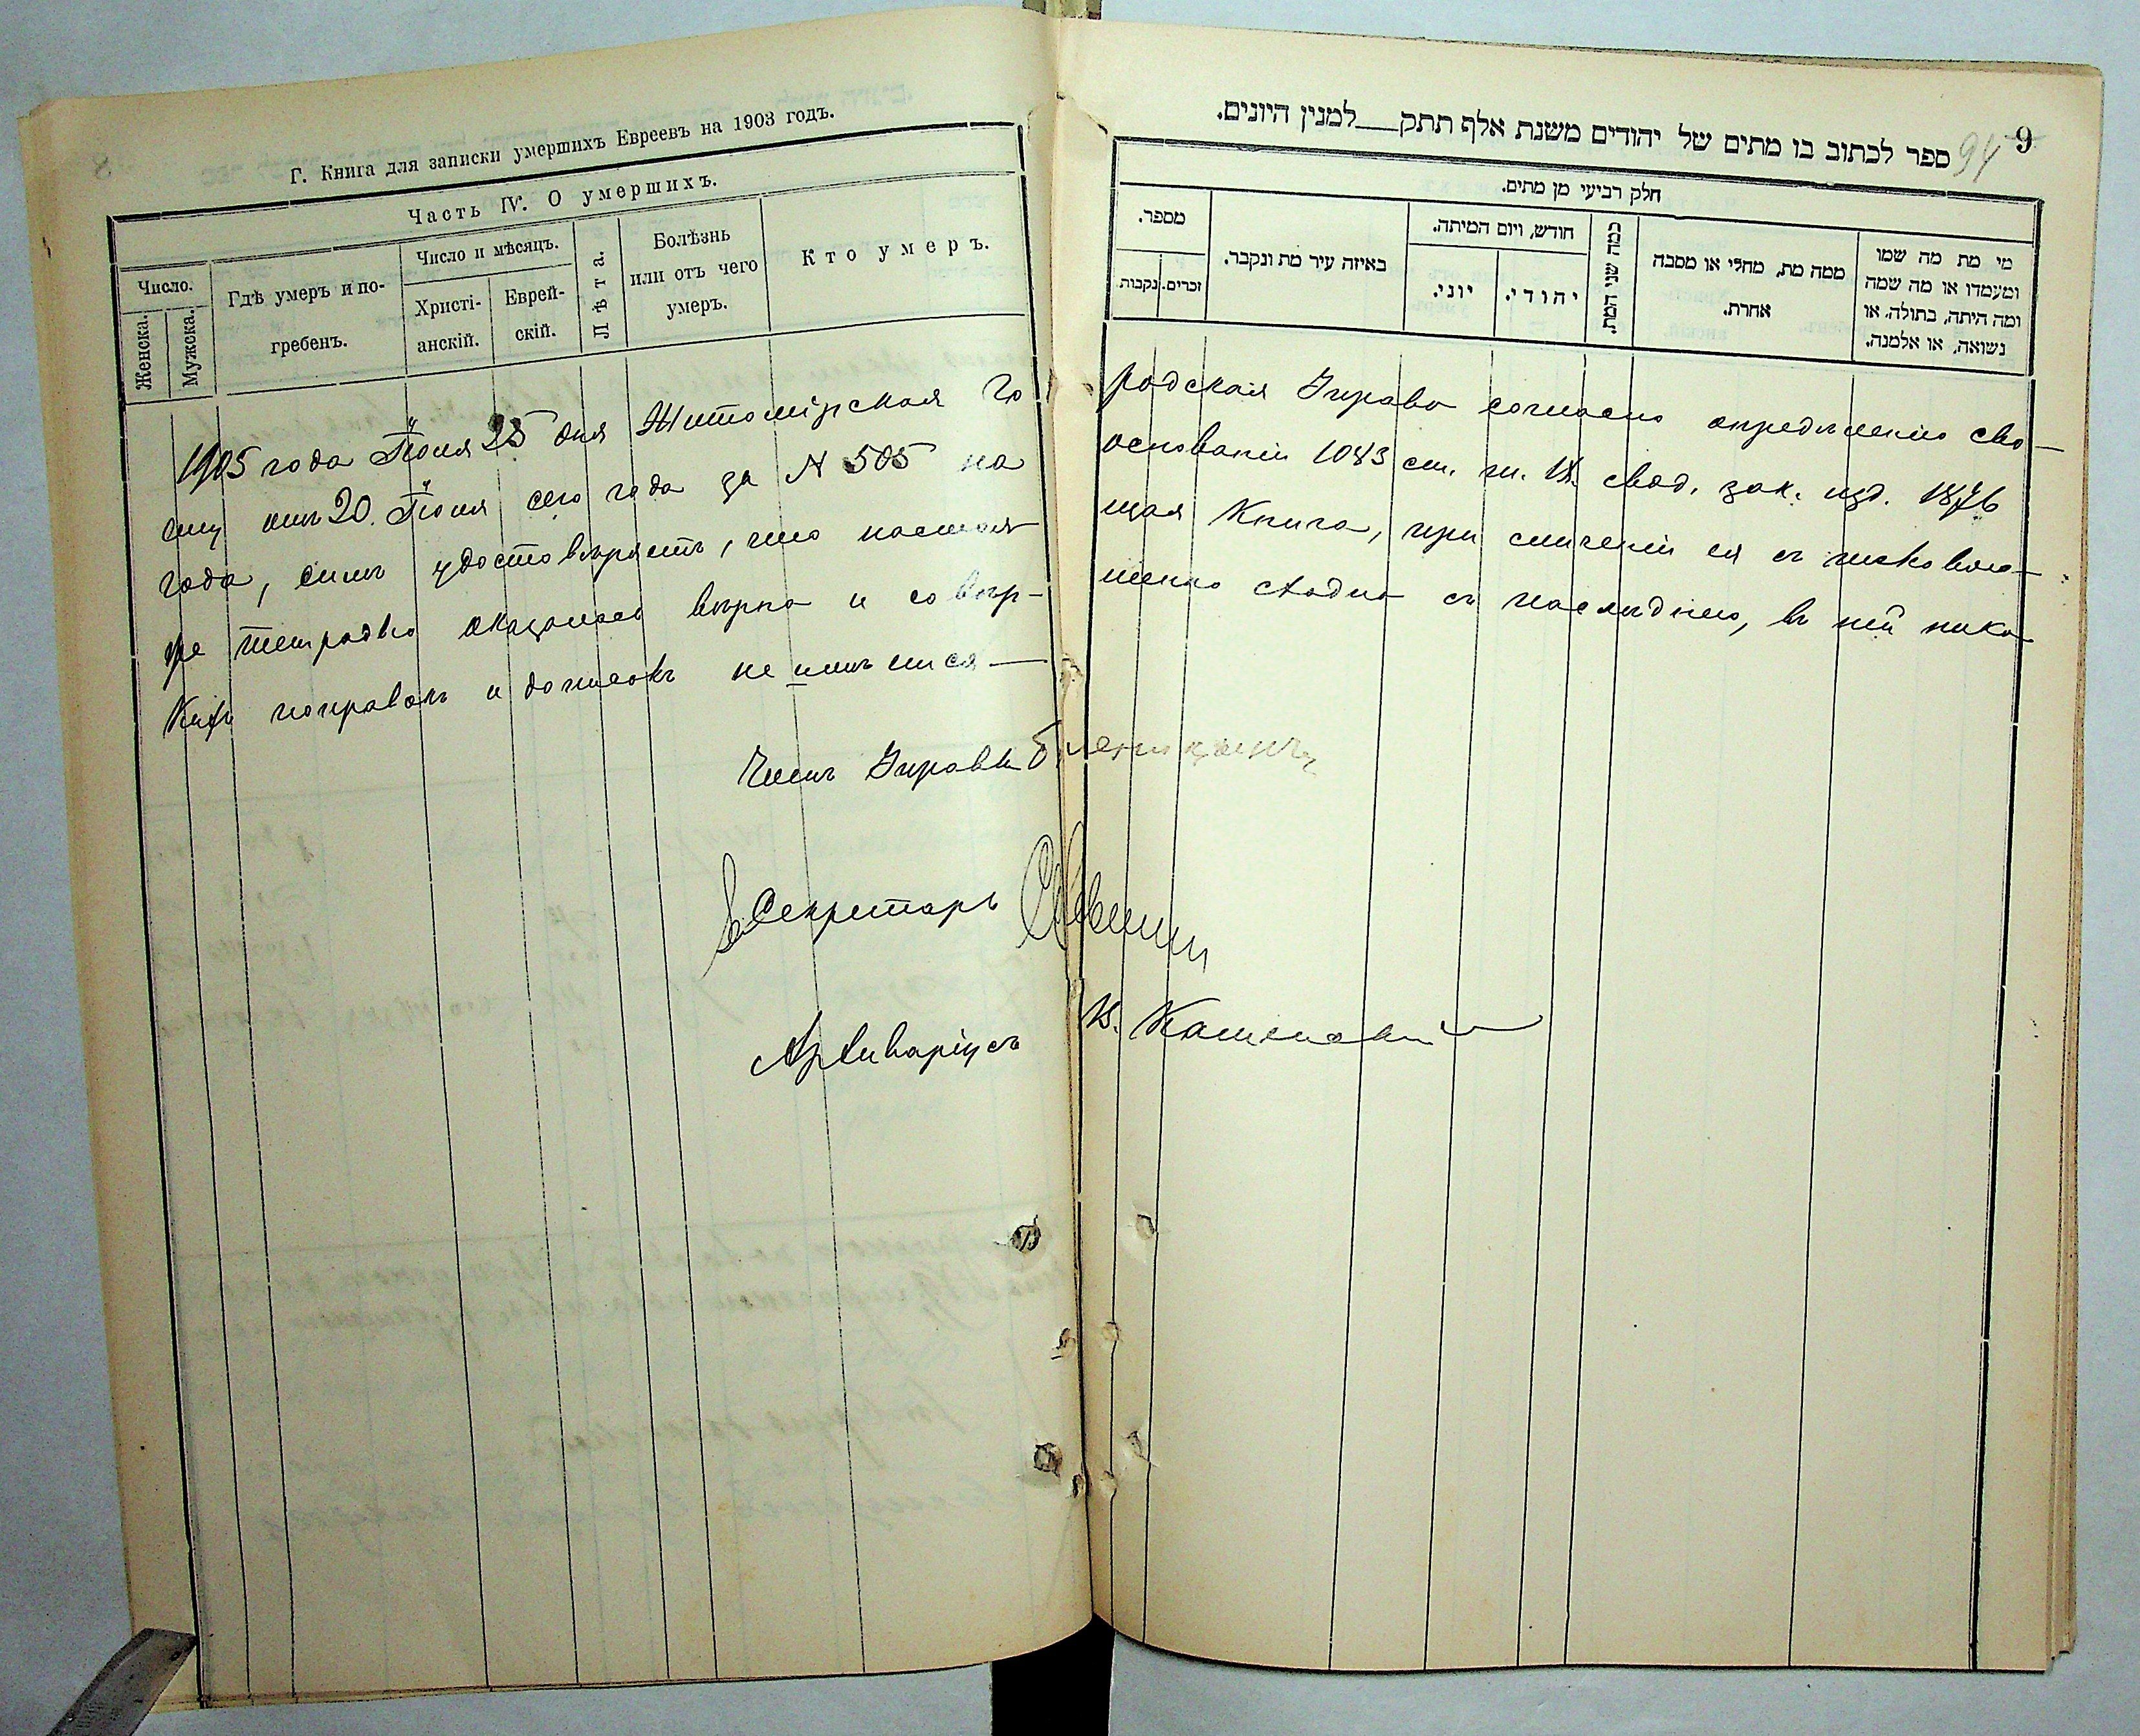 Г. Книга для записки умершихъ Евреевъ на 1903 годъ.
Часть IV. О умершихъ.
Число.
Женска.
Мужска.
Гдѣ умеръ и по-
гребенъ.
Число и мѣсяцъ.
Христі-
анскій.
Еврей-
скій.
Лѣта.
Болѣзнь
или отъ чего
умеръ.
Кто умеръ.
9
94
ספר לכתוב בו מתים של יהודים משנת אלף תתק___למנין היונים.
חלק רביעי מן מתים.
מספר.
זכרים.
נקבות.
באיזה עיר מת ונקבר.
חודש, ויום המיתה.
יוני.
יהודי.
כמה שני המת.
ממה מת, מחלי או מסבה
אחרת.
מי מת מה שמו
ומעמדו או מה שמה
ומה היתה, בתולה, או
נשואה, או אלמנה.
1905 года Іюня 25 дня Житомірская Го родская Управа согласно опредѣленію сво-
ему отъ 20. Іюня сего года за N 505 на основаніи 1083 ст. т. IX. свод. зак. изд. 1876
года, симъ удостовѣряетъ, что настоя- щая Книга, при сличеніи ея съ шнково-
ре тетрадью оказалась вѣрна и со вѣр- шенно сходна съ послѣднею, въ ней ника-
кихъ поправокъ и дописокъ не имѣется —
Членъ Управы
Секретарь
Архиваріусъ